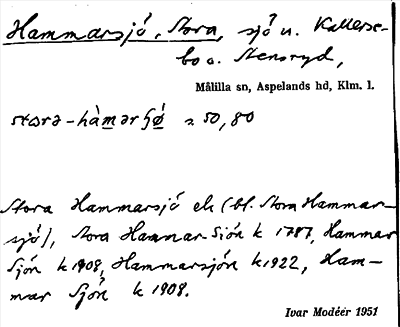 Hammarsjö, Stora, sjö n. Kallerse-
bo o. Stensryd,
Målilla sn, Aspelands hd, Klm. l.
50, 80
Stora Hammarsjö ek (bl. Stora Hammar-
sjö), Stora Hammar Siön k 1787, Hammar
Sjön k 1908, Hammarsjön k 1922, Ham-
mar Sjön k 1908.
Ivar Modéer 1951